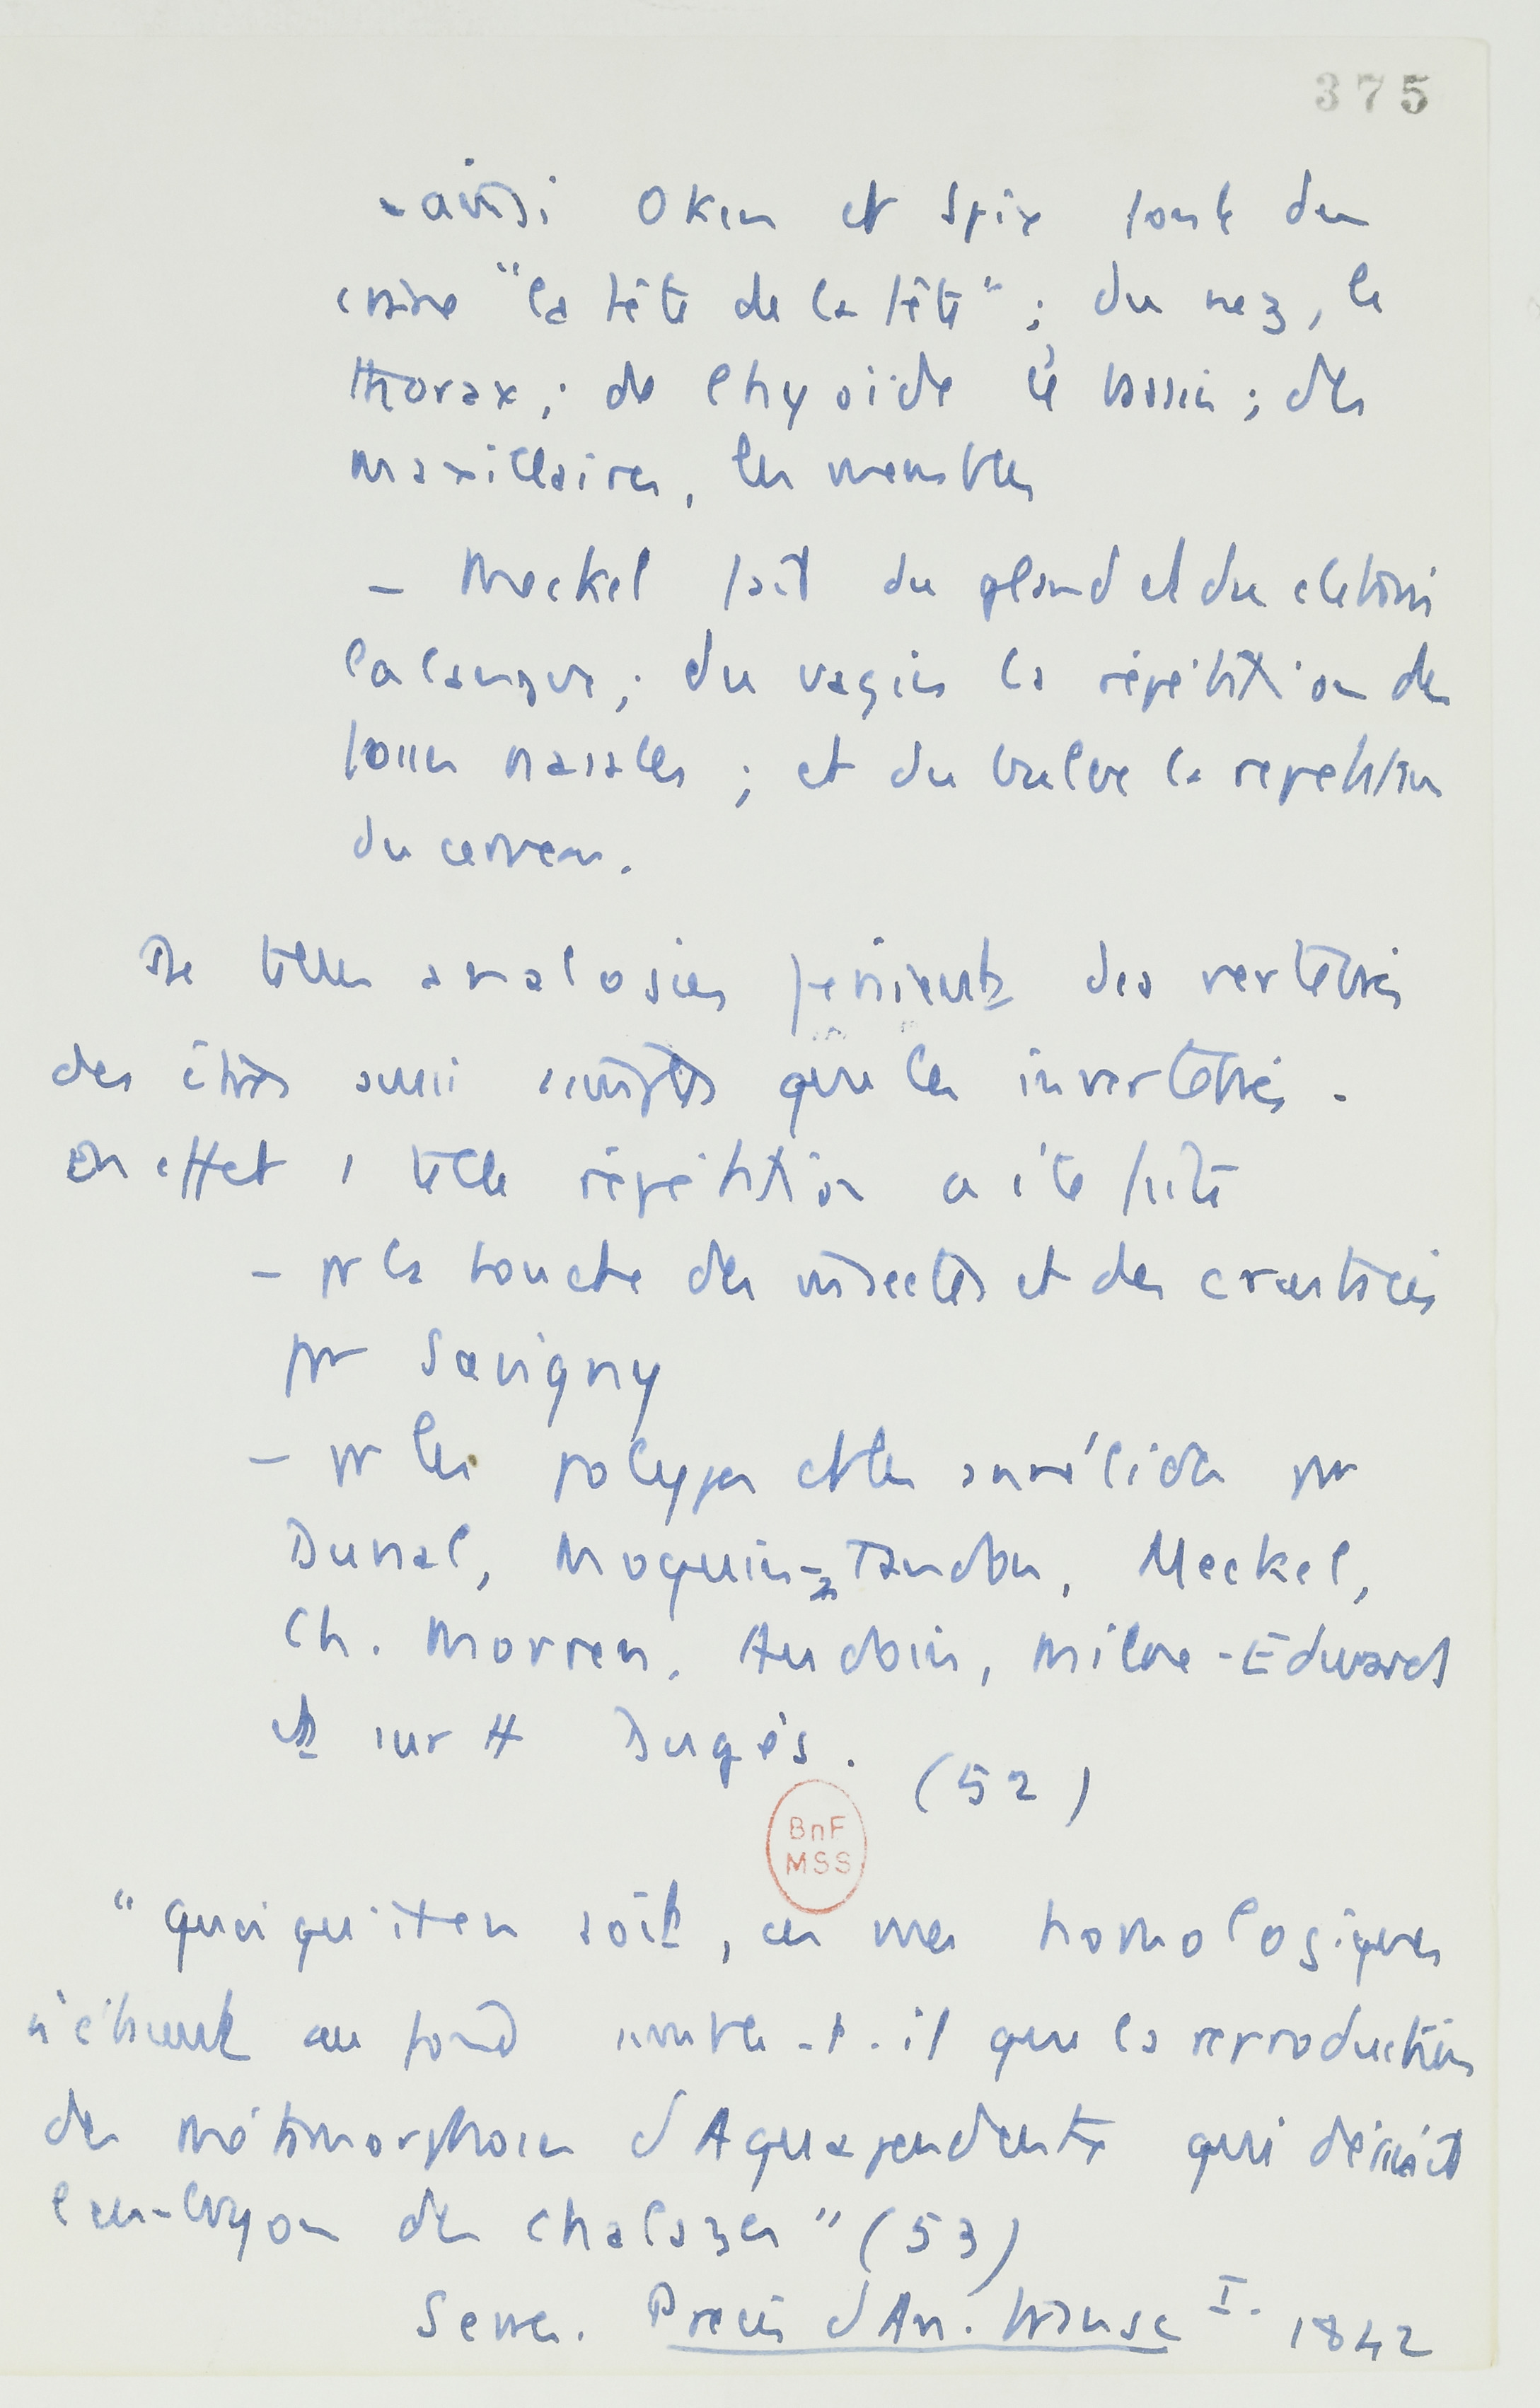 375
- ainsi Oken et Spix font du
crâne "la tête de la tête" ; du nez, le
thorax ; de l'hyoïde le bassin ; des
maxillaires, les membres
- Meckel fait du gland et du clitoris
la langue ; du vagin la répétition des
fosses nasales ; et du vulve la repetition
du cerveau.
De telles analogies feraient des vertébrés
des êtres aussi simples que les invertébrés.
En effet 1 telle répétition a été faite
- pr la bouche des insectes et des crustacés
par Savigny
- pr les polypes et les annélides par
Dunal, Moquin-Tandon, Meckel,
Ch. Morren, Audoin, Milne-Edwards
et surtt Dugès. (52)
BnF
MSS
"quoiqu'il en soit, ces vues homologiques
n'étaient au fond semble-t-il que la reproduction
des métamorphoses d'Aquapendente qui
l'embryon des chalazes" (53)
Serres. Précis d'An. transc I. 1842